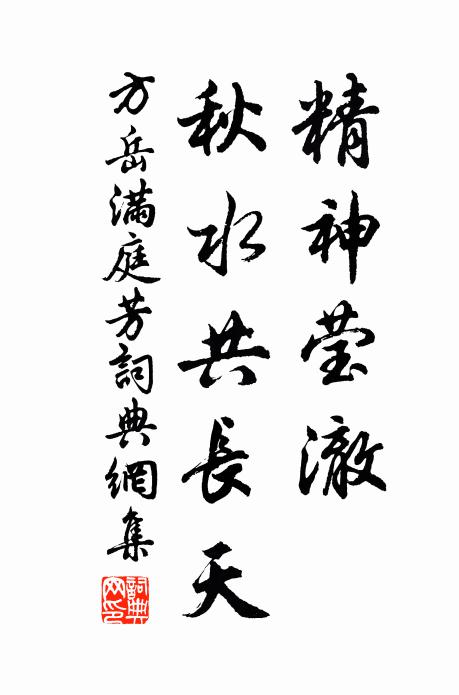 精神莹澈
秋水共長天
方岳滿庭芳詞典網集
詞典网印